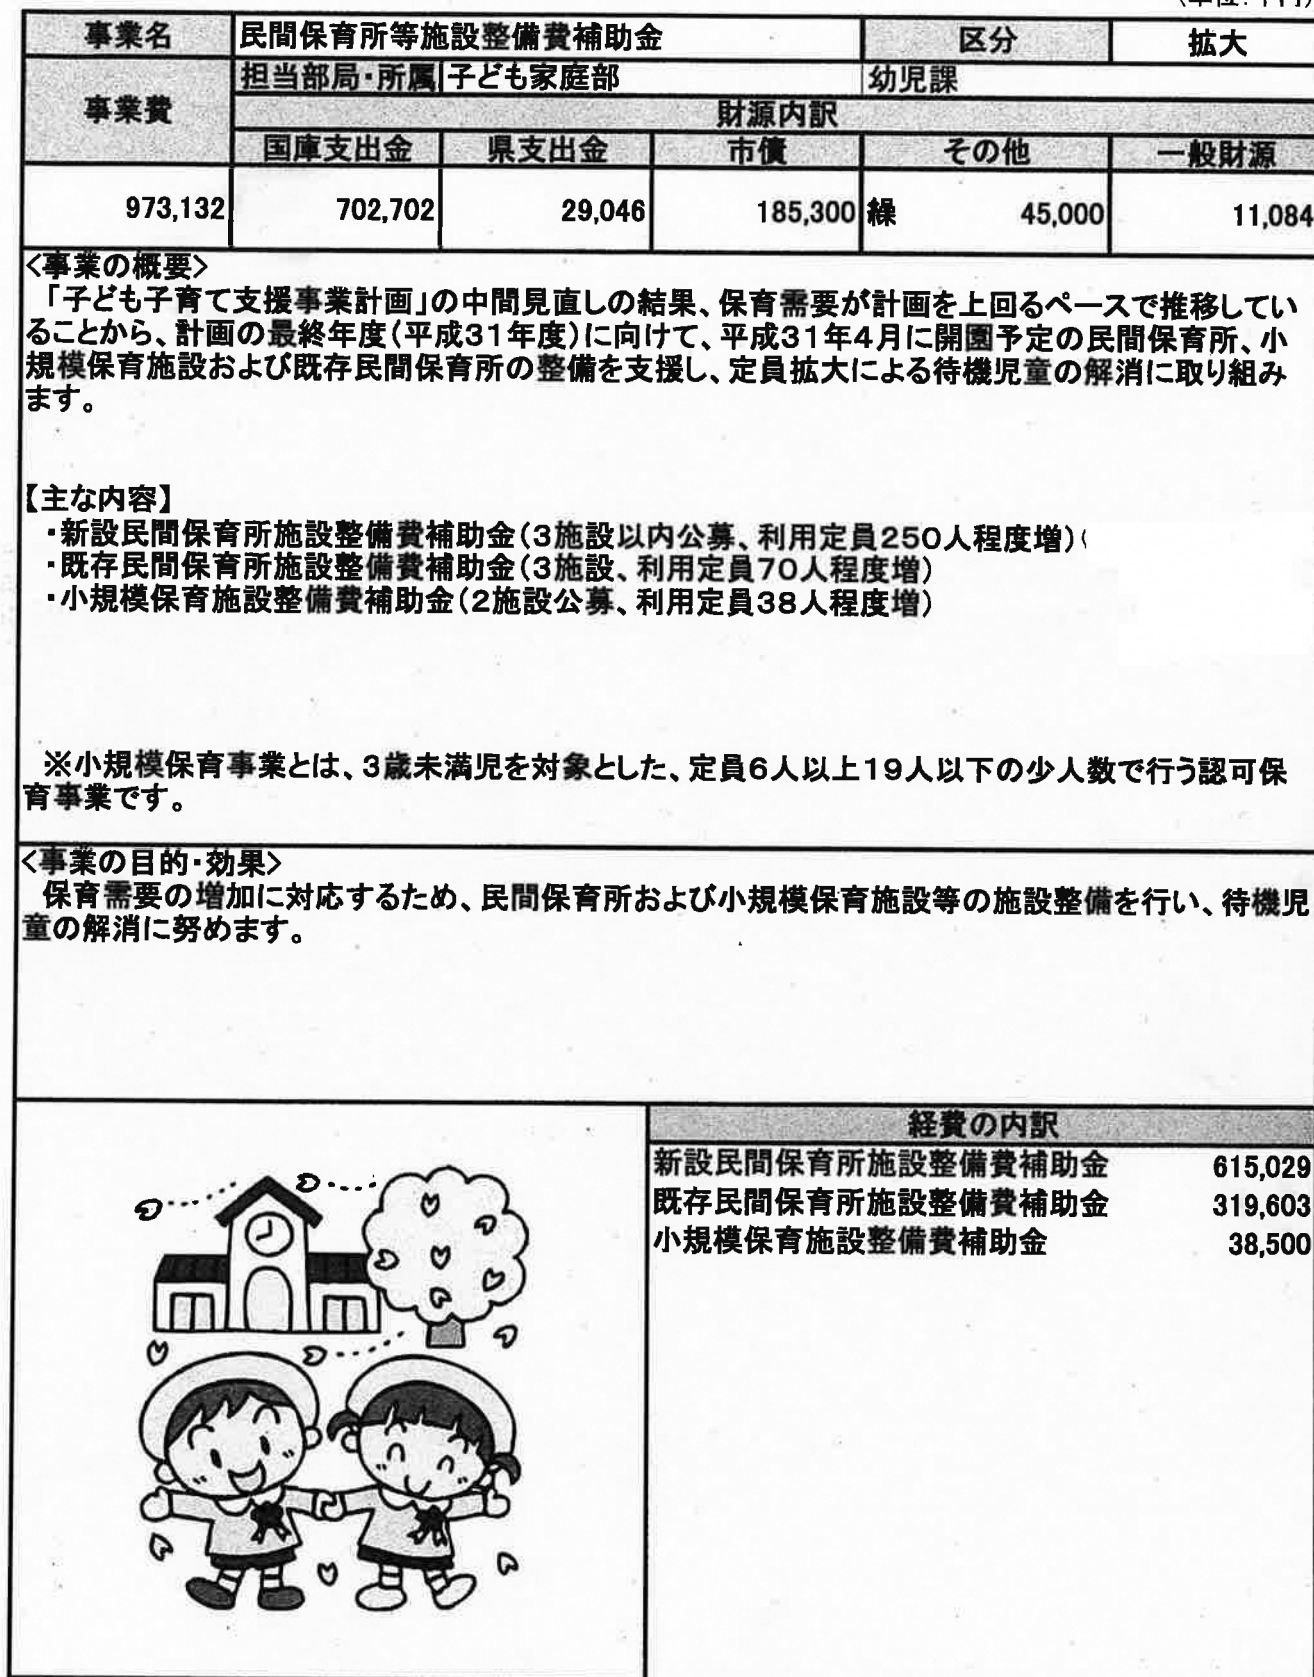 事業名 民間保育所等施設整備費補助金 区分 拡大
担当部局・所属 子ども家庭部 幼児課
事業費
財源内訳
国庫支出金 県支出金 市債 その他 一般財源
973,132 702,702 29,046 185,300 繰 45,000 11,084
<事業の概要>
「子ども子育て支援事業計画」の中間見直しの結果、保育需要が計画を上回るペースで推移してい
ることから、計画の最終年度(平成31年度)に向けて、平成31年4月に開園予定の民間保育所、小
規模保育施設および既存民間保育所の整備を支援し、定員拡大による待機児童の解消に取り組み
ます。
【主な内容】
・新設民間保育所施設整備費補助金(3施設以内公募、利用定員250人程度増)(
・既存民間保育所施設整備費補助金(3施設、利用定員70人程度増)
・小規模保育施設整備費補助金(2施設公募、利用定員38人程度増)
※小規模保育事業とは、3歳未満児を対象とした、定員6人以上19人以下の少人数で行う認可保
育事業です。
<事業の目的・効果>
保育需要の増加に対応するため、民間保育所および小規模保育施設等の施設整備を行い、待機児
童の解消に努めます。
経費の内訳
新設民間保育所施設整備費補助金 615,029
既存民間保育所施設整備費補助金 319,603
小規模保育施設整備費補助金 38,500